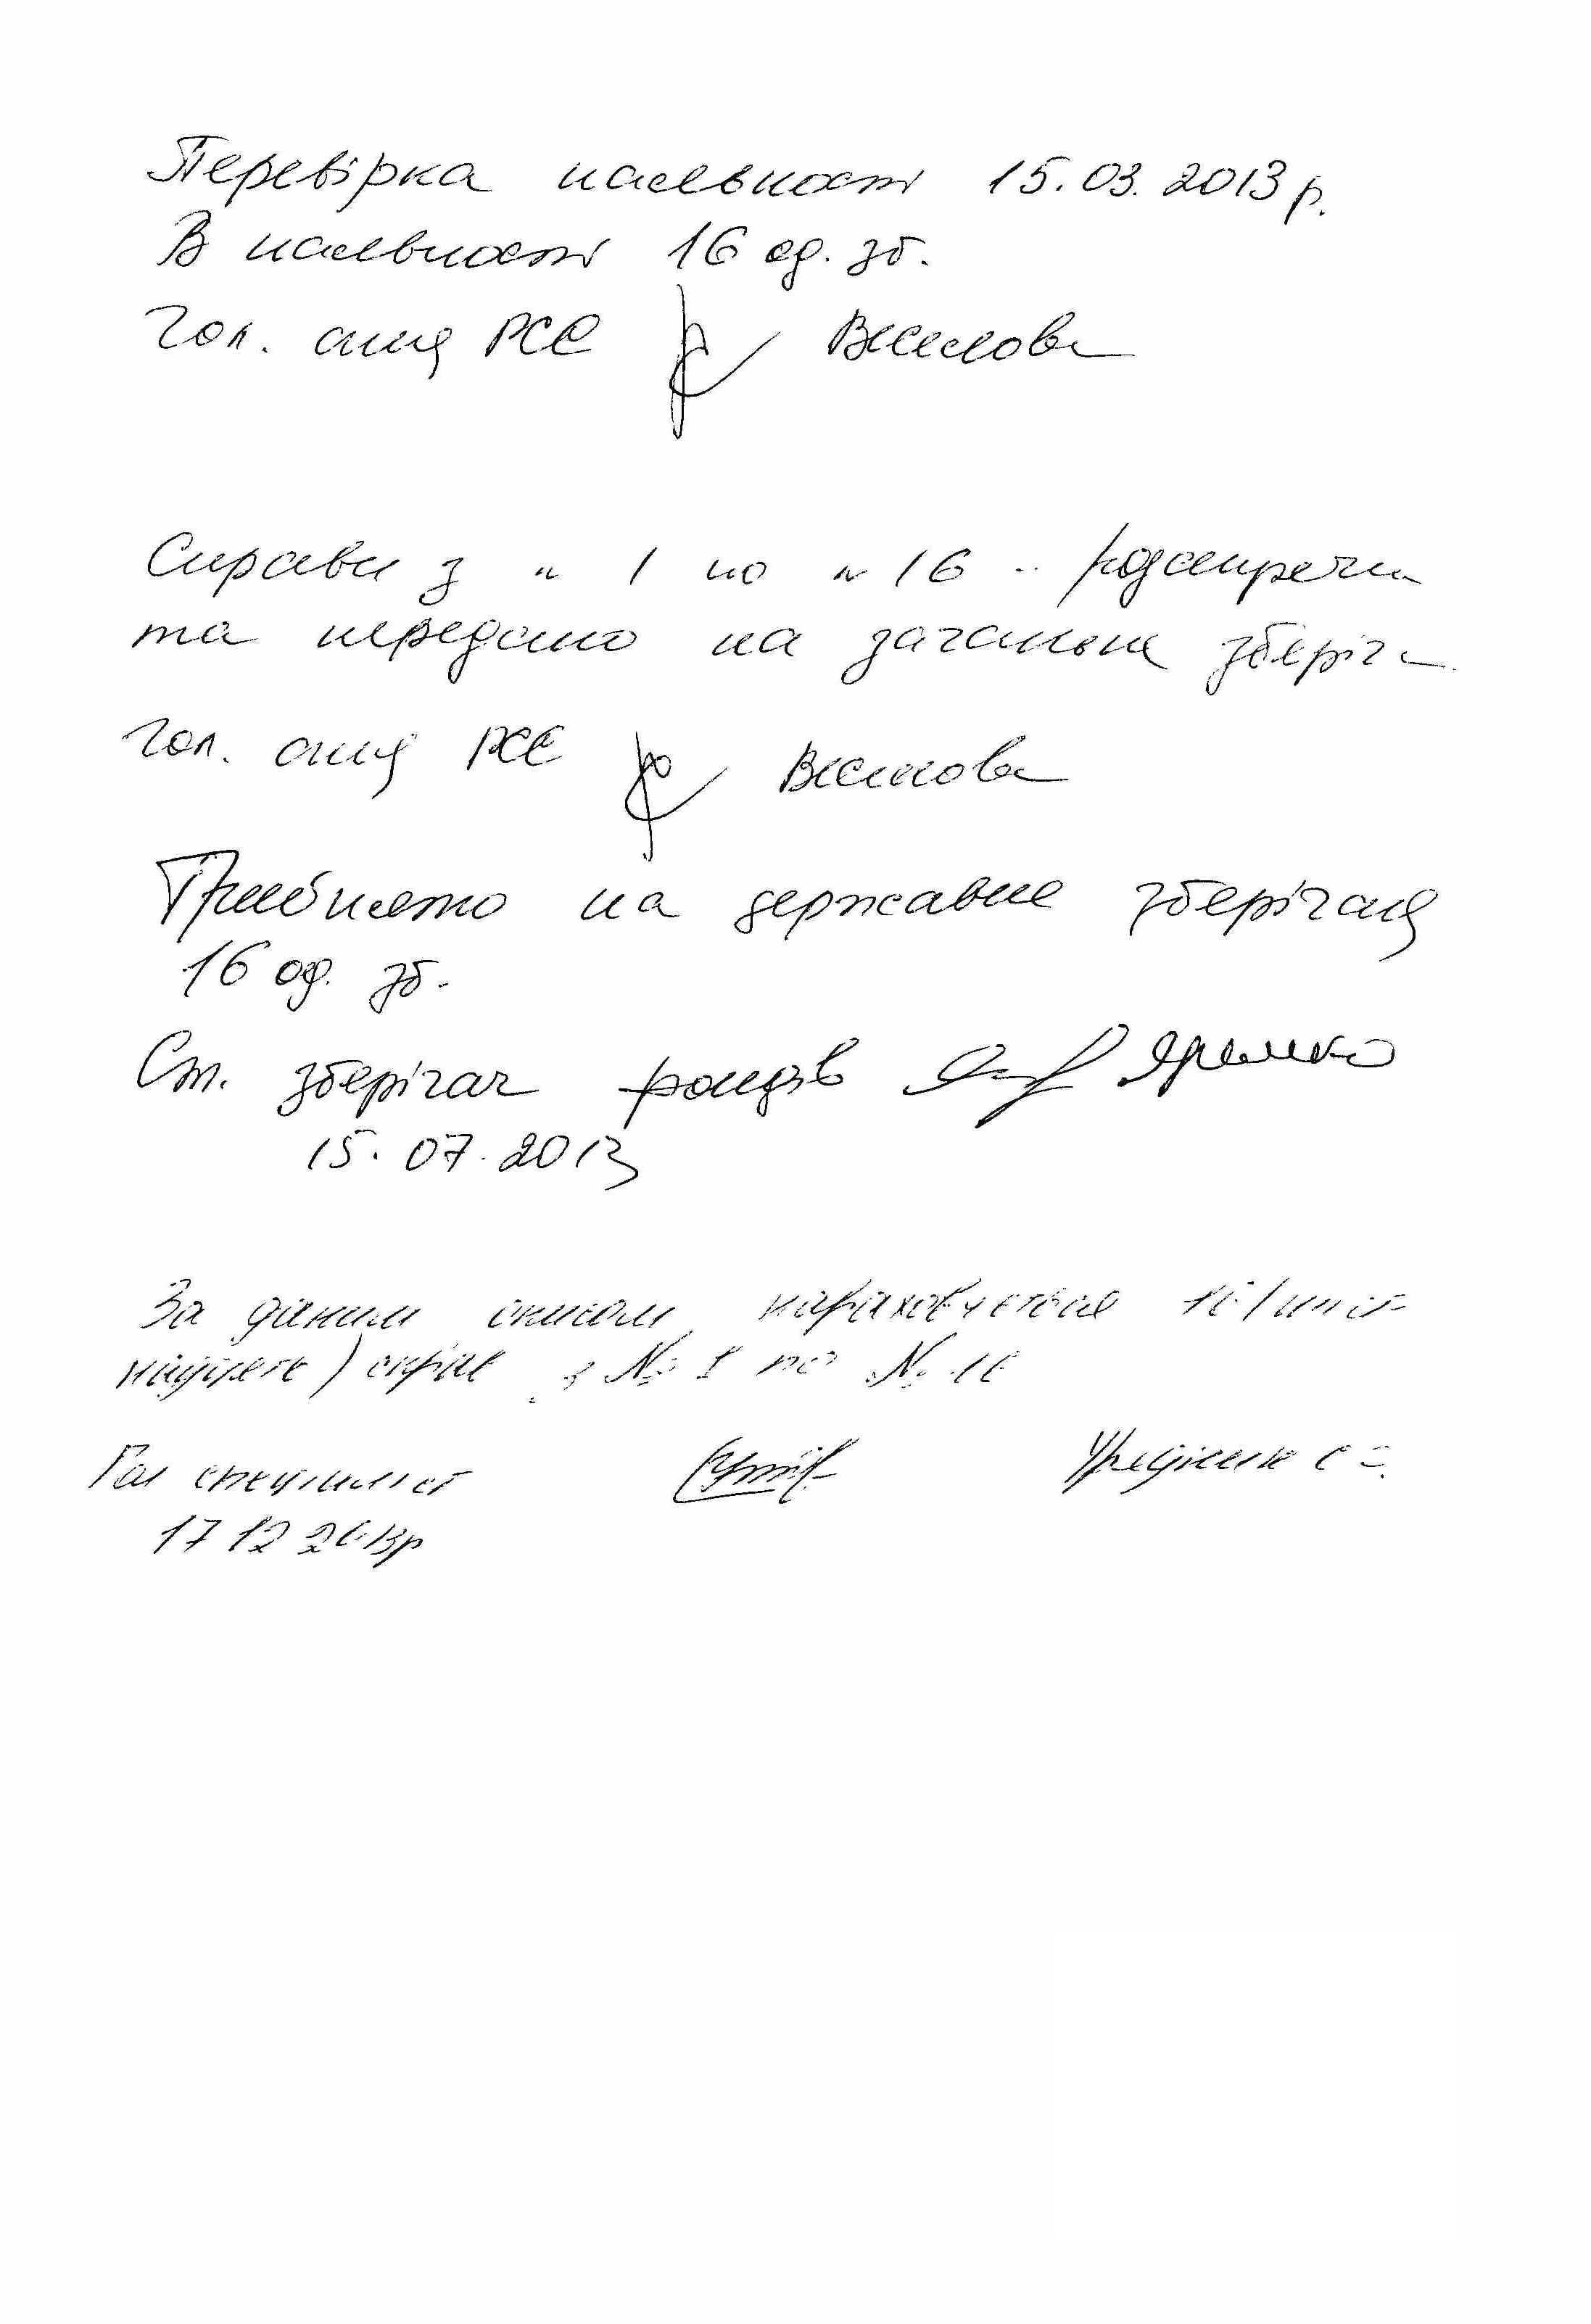 Перевірка наявності 15.03.2013 р.
В наявності 16 од. зб.
Гол. спец РСЕ Веселова
Справи з " 1 по " 16 - розсекречен
та передано на загальне зберіг
Гол. спец РСЕ Веселова
Прийнято на державне зберіган
16 од. зб.
Ст. зберігач фондів Яременко
15.07.2013
За даним описом нараховується 16 /шіст
надцять/ справ з № 1 по № 16
Гол спеціаліст
17 12 2013р